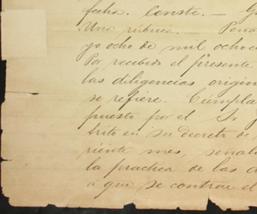 fecha. Conste. — G
Una rúbrica. — Pena
yo ocho de mil ochoc
Por recibido el presente
las diligencias origin
se refiere. Cumpla
puesto por el S
brito en su decreto de
riente mes, señala
la practica de las d
a que se contrae el